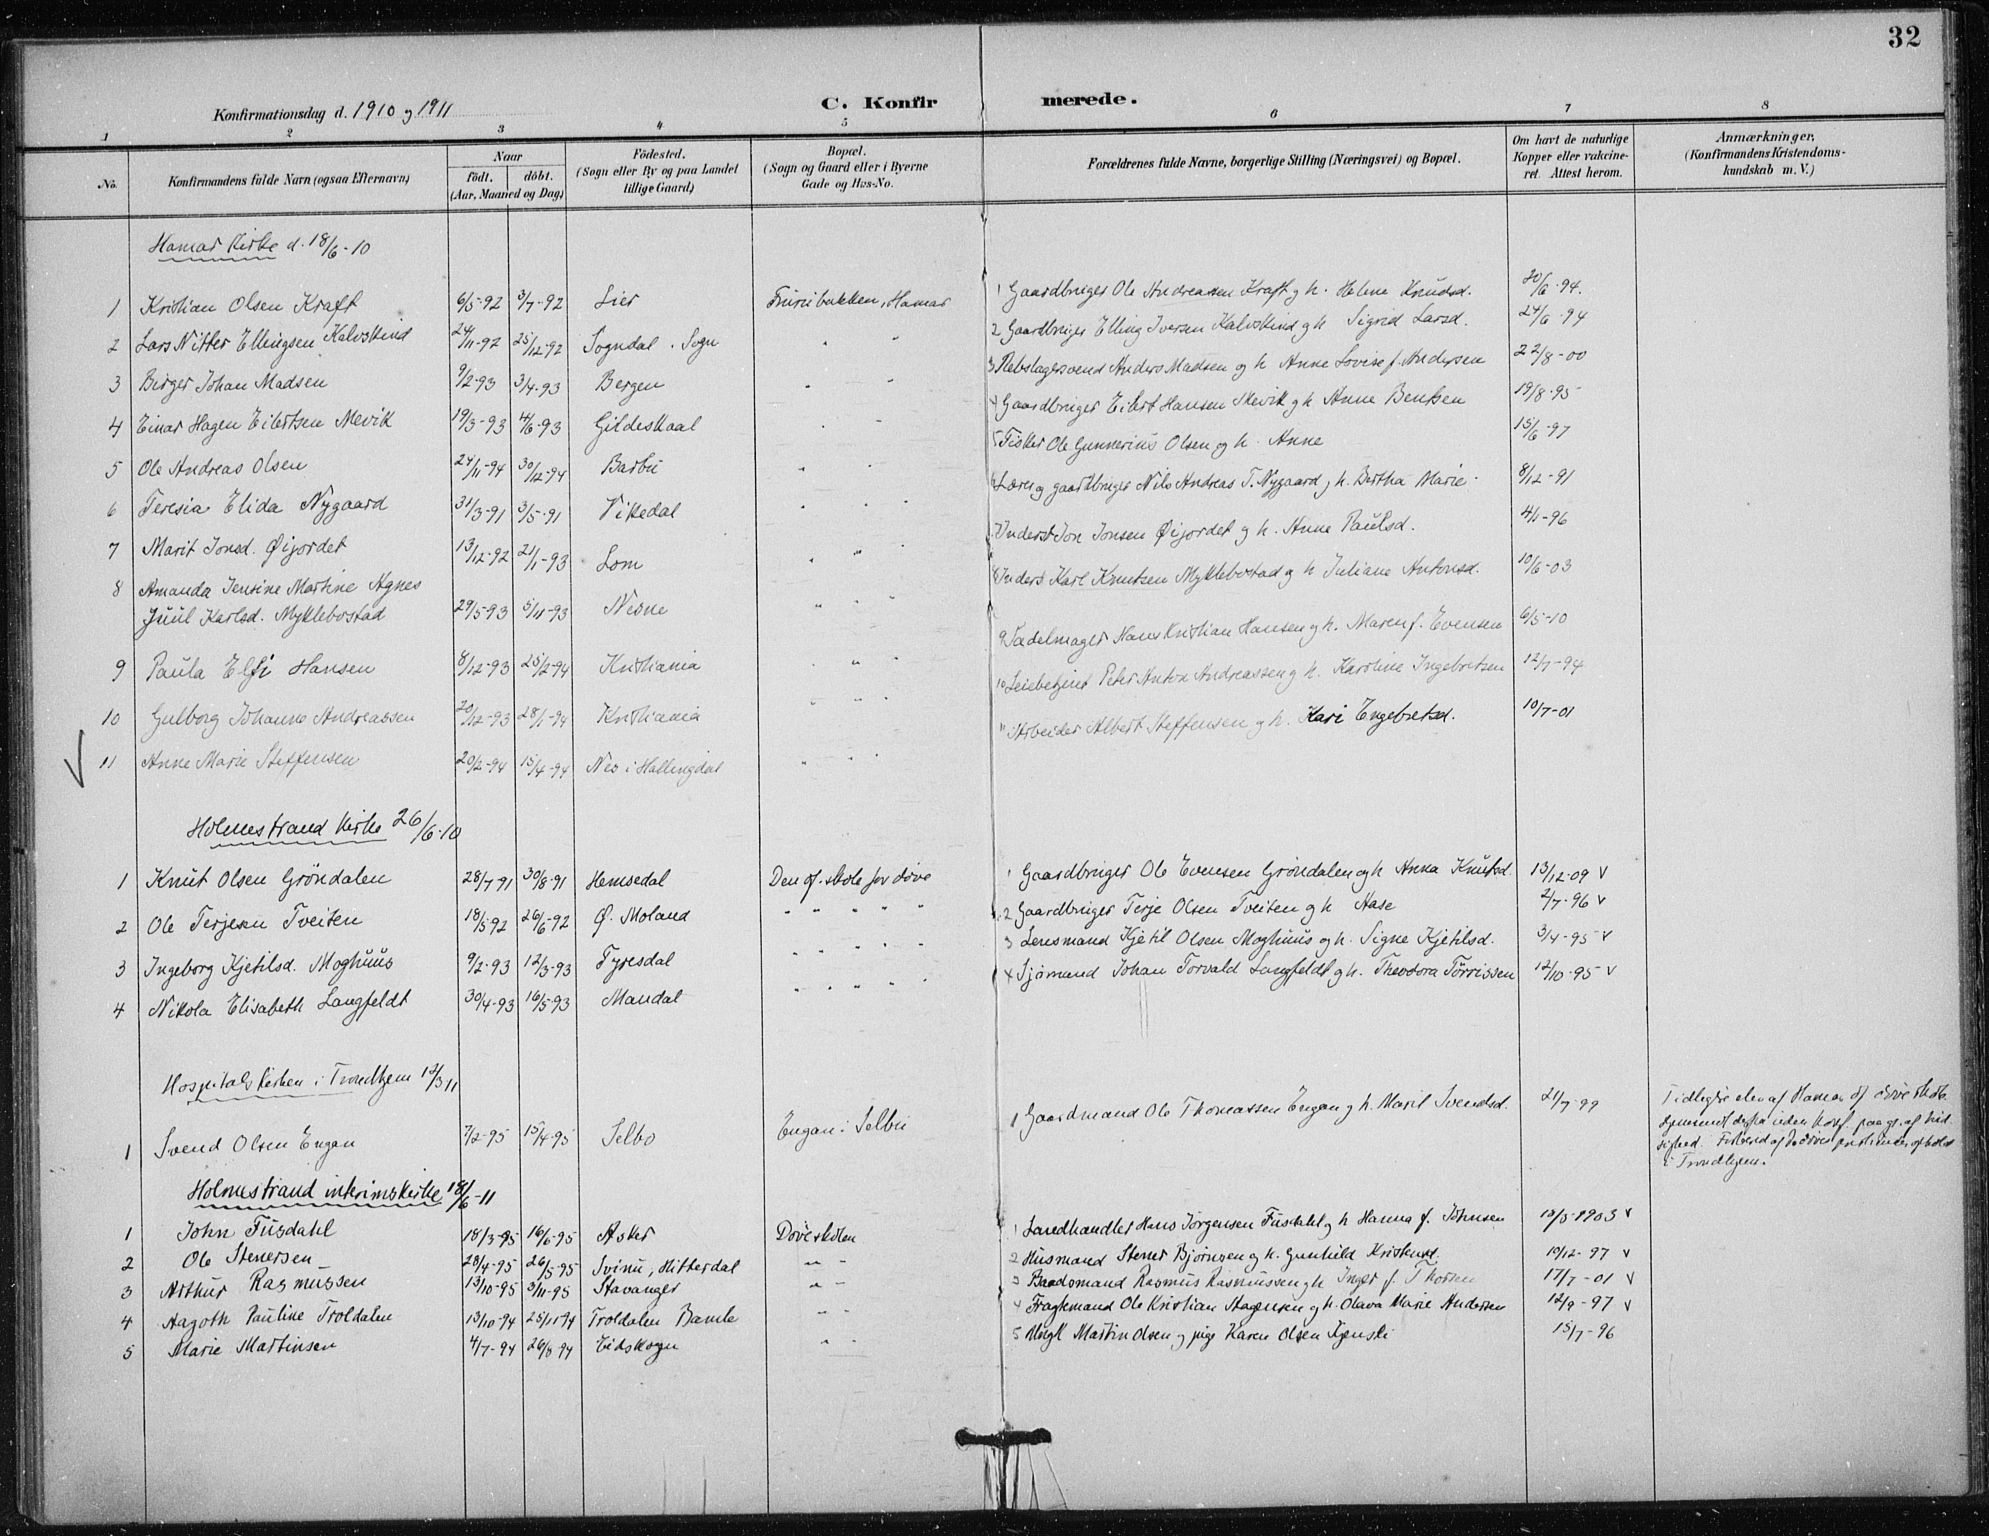 32
Konfirmationsdag d. 1910 og 1911
C. Konfirmerede.
1 2 3 4 5 6 7 8
No.
Konfirmandens fulde Navn (ogsaa Efternavn)
Naar
født. døbt.
(Aar, Maaned og Dag)
Fødested.
(Sogn eller By og paa Landet
tillige Gaard)
Bopæl.
(Sogn og Gaard eller i Byerne
Gade og Hus-No.
Forældrenes fulde Navne, borgerlige Stilling (Næringsvei) og Bopæl.
Om havt de naturlige
Kopper eller vakcine-
ret. Attest herom.
Anmærkninger,
(Konfirmandens Kristendoms-
kundskab m. V.)
Hamar Kirke d. 18/6-10
1 Kristian Olsen Kraft 6/5-92 3/7-92 Lier Furubakken, Hamar 1 Gaardbruger Ole Andreassen Kraft og h. Helene Knudsd. 20/6-94.
2 Lars Nitter Ellingsen Kalvskind 24/11-92 25/12-92 Sogndal. Sogn " " 2 Gaardbruger Elling Iversen Kalvskind og h Sigrid Larsd. 24/6-94
3 Birger Johan Madsen 9/2-93 3/4-93 Bergen " " 3 Rebslagersvend Anders Madsen og h Anne Lovise f. Andersen 22/8-00
4 Einar Hagen Eilertsen Mevik 19/3-93 4/6-93 Gildeskaal " " 4 Gaardbruger Eilert Hansen Mevik og h Anne Bentsen 19/8-95
5 Ole Andreas Olsen 24/11-94 30/12-94 Barbu " " 5 Fisker Ole Gunnerius Olsen og h. Anne 15/6-97
6 Teresia Elida Nygaard 31/3-91 3/5-91 Vikedal " " 6 Lærer og gaardbruger Nils Andreas T. Nygaard og h. Bertha Marie 8/12-91
7 Marit Jonsd. Øijordet 13/12-92 21/1-93 Lom " " " 7 Inderst Jon Jonsen Øijordet og h. Anne Paulsd. 4/1-96
8 Amanda Jensine Martine Agnes
Juul Karlsd. Myklebostad 29/5-93 5/11-93 Nesne " " " 8 Inders. Karl Knutsen Myklebostad og h Juliane Antonsd. 10/6-03
9 Paula Elfi Hansen 8/12-93 25/2-94 Kristiania " " " 9 Sadelmager Hans Kristian Hansen og h. Maren f. Evensen 6/5-10
10 Gulborg Johanne Andreassen 20/12-93 28/1-94 Kristiania " " " 10 Leiebetjent Peter Anton Andreassen og h. Karoline Ingebretsen 12/7-94
11 Anne Marie Steffensen 20/2-94 15/4-94 Nes i Hallingdal " " " 11 Arbeider Albert Steffensen og h. Kari Engebretsd. 10/7-01
Holmestrand Kirke 26/6-10
1 Knut Olsen Gröndalen 28/7 91 30/8-91 Hemsedal Den of. skole for döve 1 Gaardbruger Ole Evensen Gröndalen og h Anna Knutsd. 13/12-09 v
2 Ole Terjesen Tveiten 18/5 92 26/6-92 Ø. Moland " " " " " 2 Gaardbruger Terje Olsen Tveiten og h Aase 2/7-96 v
3 Ingeborg Kjetilsd. Moghuus 9/2-93 12/3-93 Fyresdal " " " " " 3 Lensmand Kjetil Olsen Moghuus og h. Signe Kjetilsd. 3/4-95 v
4 Nikola Elisabeth Langfeldt 30/4-93 16/5-93 Mandal " " " " " 4 Sjømand Johan Torvald Langfeldt og h. Theodora Törrissen 12/10-95 v
Hospitals kirken i Trondhjem 12/3 11
1 Svend Olsen Engan 7/2-95 15/4-95 Selbo Engan i Selbu 1 Gaardmand Ole Thomassen Engan og h. Marit Svendsd. 21/7-99 Tidligere elev af Hamar of döveskole
uden konf. paa gr. af
i Trondhjem.
Holmestrand interimskirke 18/6-11
1 John Fusdahl 18/3-95 16/6-95 Asker Döveskolen 1 Landhandler Hans Jørgensen Fusdahl og h Hanna f. Johnsen 13/5-1903 v
2 Ole Stenersen 28/4-95 26/5-95 Svinu, Hitterdal " " 2 Husmand Stener Bjørnsen og h. Gunhild Kristensd. 10/12-97 v
3 Arthur Rasmussen 13/10-95 3/11-95 Stavanger " " 3 Baadsmand Rasmus Rasmussen og h Inger f. Thorsen 17/7-01 v
4 Aagoth Pauline Troldalen 13/10-94 25/11 94 Troldalen Bamle " " 4 Fragtemand Ole Kristian Aagensen og h. Olava Marie Andersen 12/9-97 v
5 Marie Martinsen 4/7-94 26/8 94 Eidskogn " " 5 Ungk Martin Olsen og pige Karen Olsen 15/7-96